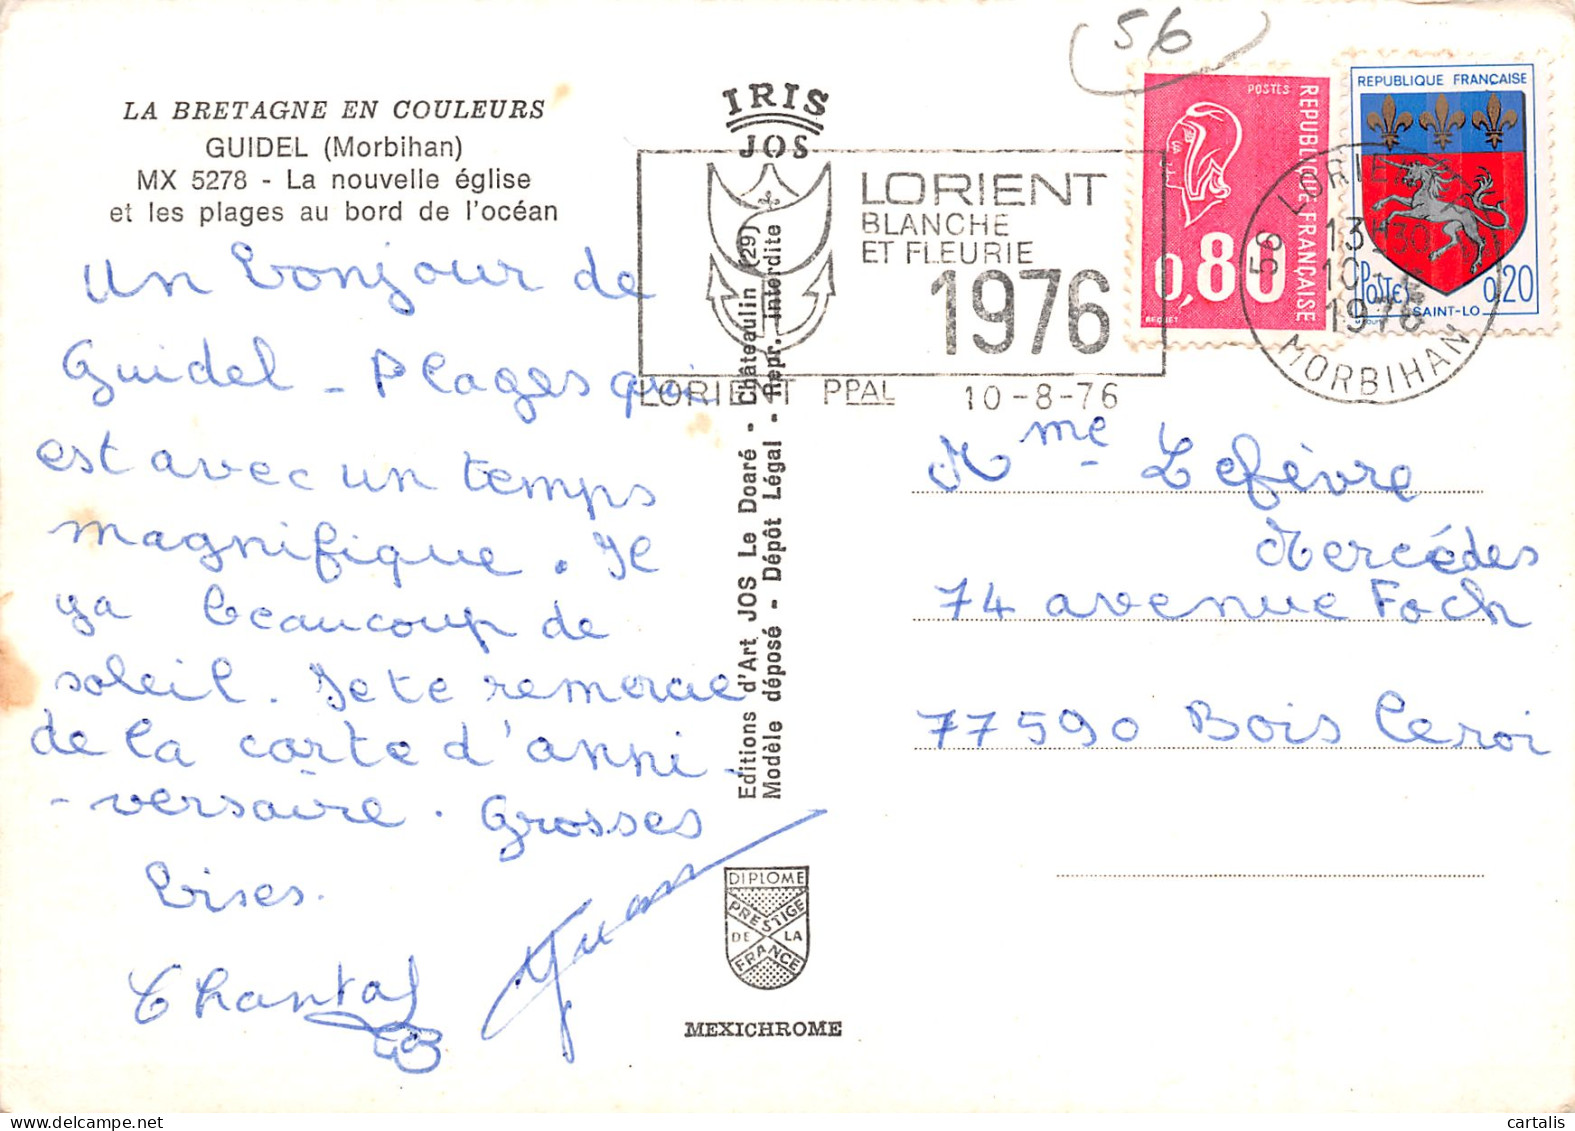 56
LA BRETAGNE EN COULEURS
GUIDEL (Morbihan)
MX 5278 - La nouvelle église
et les plages au bord de l'océan
Un bonjour de
Guidel - Plages qui
est avec un temps
magnifique. Il
ya beaucoup de
soleil. Je te remercie
de la carte d'anni-
-versaire. Grosses
bises.
Chantal
IRIS
JOS
Editions d'Art JOS Le Doaré - Châteaulin (29)
Modèle déposé - Dépôt Légal - Repr. interdite
DIPLOME
PRESTIGE
DE LA
FRANCE
MEXICHROME
LORIENT
BLANCHE
ET FLEURIE
1976
LORIENT PPAL 10-8-76
POSTES
REPUBLIQUE FRANÇAISE
0,80
BEQUET
REPUBLIQUE FRANÇAISE
POSTES
0,20
SAINT-LO
56 LORIENT
13H30
10-8
1976
MORBIHAN
Mme Lefèvre
Mercédes
74 avenue Foch
77590 Bois le roi
cartalis